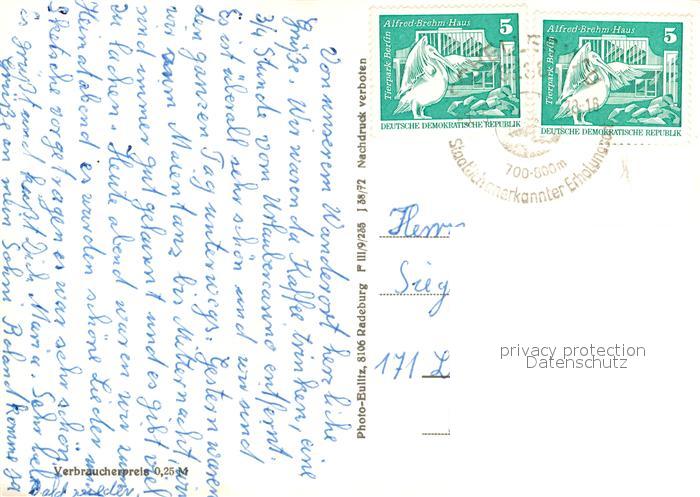 Alfred-Brehm-Haus
5
Tierpark Berlin
DEUTSCHE DEMOKRATISCHE REPUBLIK
Alfred-Brehm-Haus
5
Tierpark Berlin
DEUTSCHE DEMOKRATISCHE REPUBLIK
700-800m
Staatlich anerkannter Erholungso
Von unserem Wanderort herrliche
Grüße. Wir waren da Kaffee trinken, eine
3/4 Stunde vom Urlaubercasino entfernt.
Es ist überall sehr schön und wir sind
den ganzen Tag unterwegs. Gestern waren
wir zum Maientanz bis Mitternacht, wir
sind immer gut gelaunt und es gibt viel
Heute abend waren wir zum
Heimatabend es wurden schöne Lieder und
vorgetragen es war sehr schön
es grüßt und küßt Dich Maria.
Grüße an mein Sohn Roland komme ja
bald wieder.
Verbraucherpreis 0,25 M
Photo-Bulitz, 8106 Radeburg F III/9/235 J 38/72 Nachdruck verboten
Herrn
Sieg
171 L
privacy protection
Datenschutz